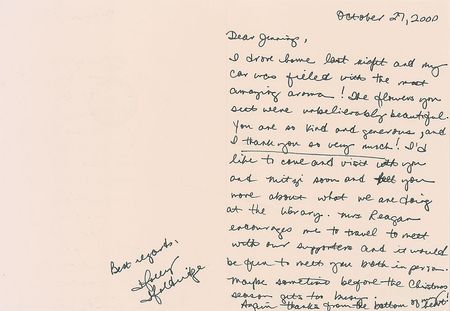 October 27, 2000
Dear Jennings,
I drove home last night and my
car was filled with the most
amazing aroma! The flowers you
sent were unbelievably beautiful.
You are so kind and generous, and
I thank you so very much! I'd
like to come and visit with you
and Mitzi soon and tell you
more about what we are doing
at the library. Mrs Reagan
encourages me to travel to meet
with our supporters and it would
be fun to meet you both in person.
Maybe sometime before the Christmas
season gets too busy.
Again thanks from the bottom of heart!
Best regards,